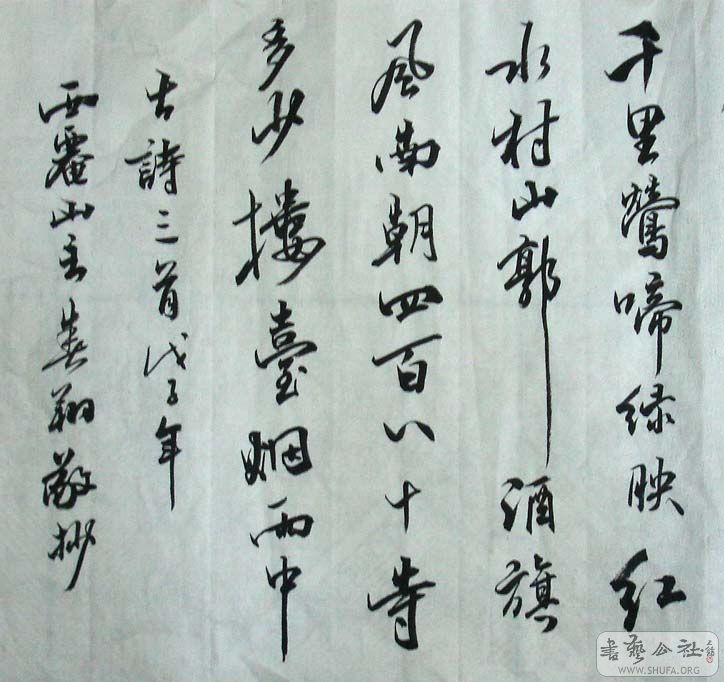 千里鶯啼绿映红
水村山郭酒旗
風南朝四百八十寺
多少樓臺烟雨中
古詩三首戊子年
西麓山主春翔敬抄
書藝公社
WWW.SHUFA.ORG